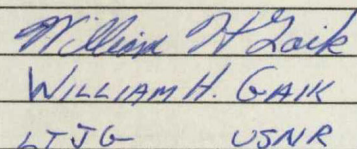 William H Gaik
WILLIAM H. GAIK
LTJG USNR